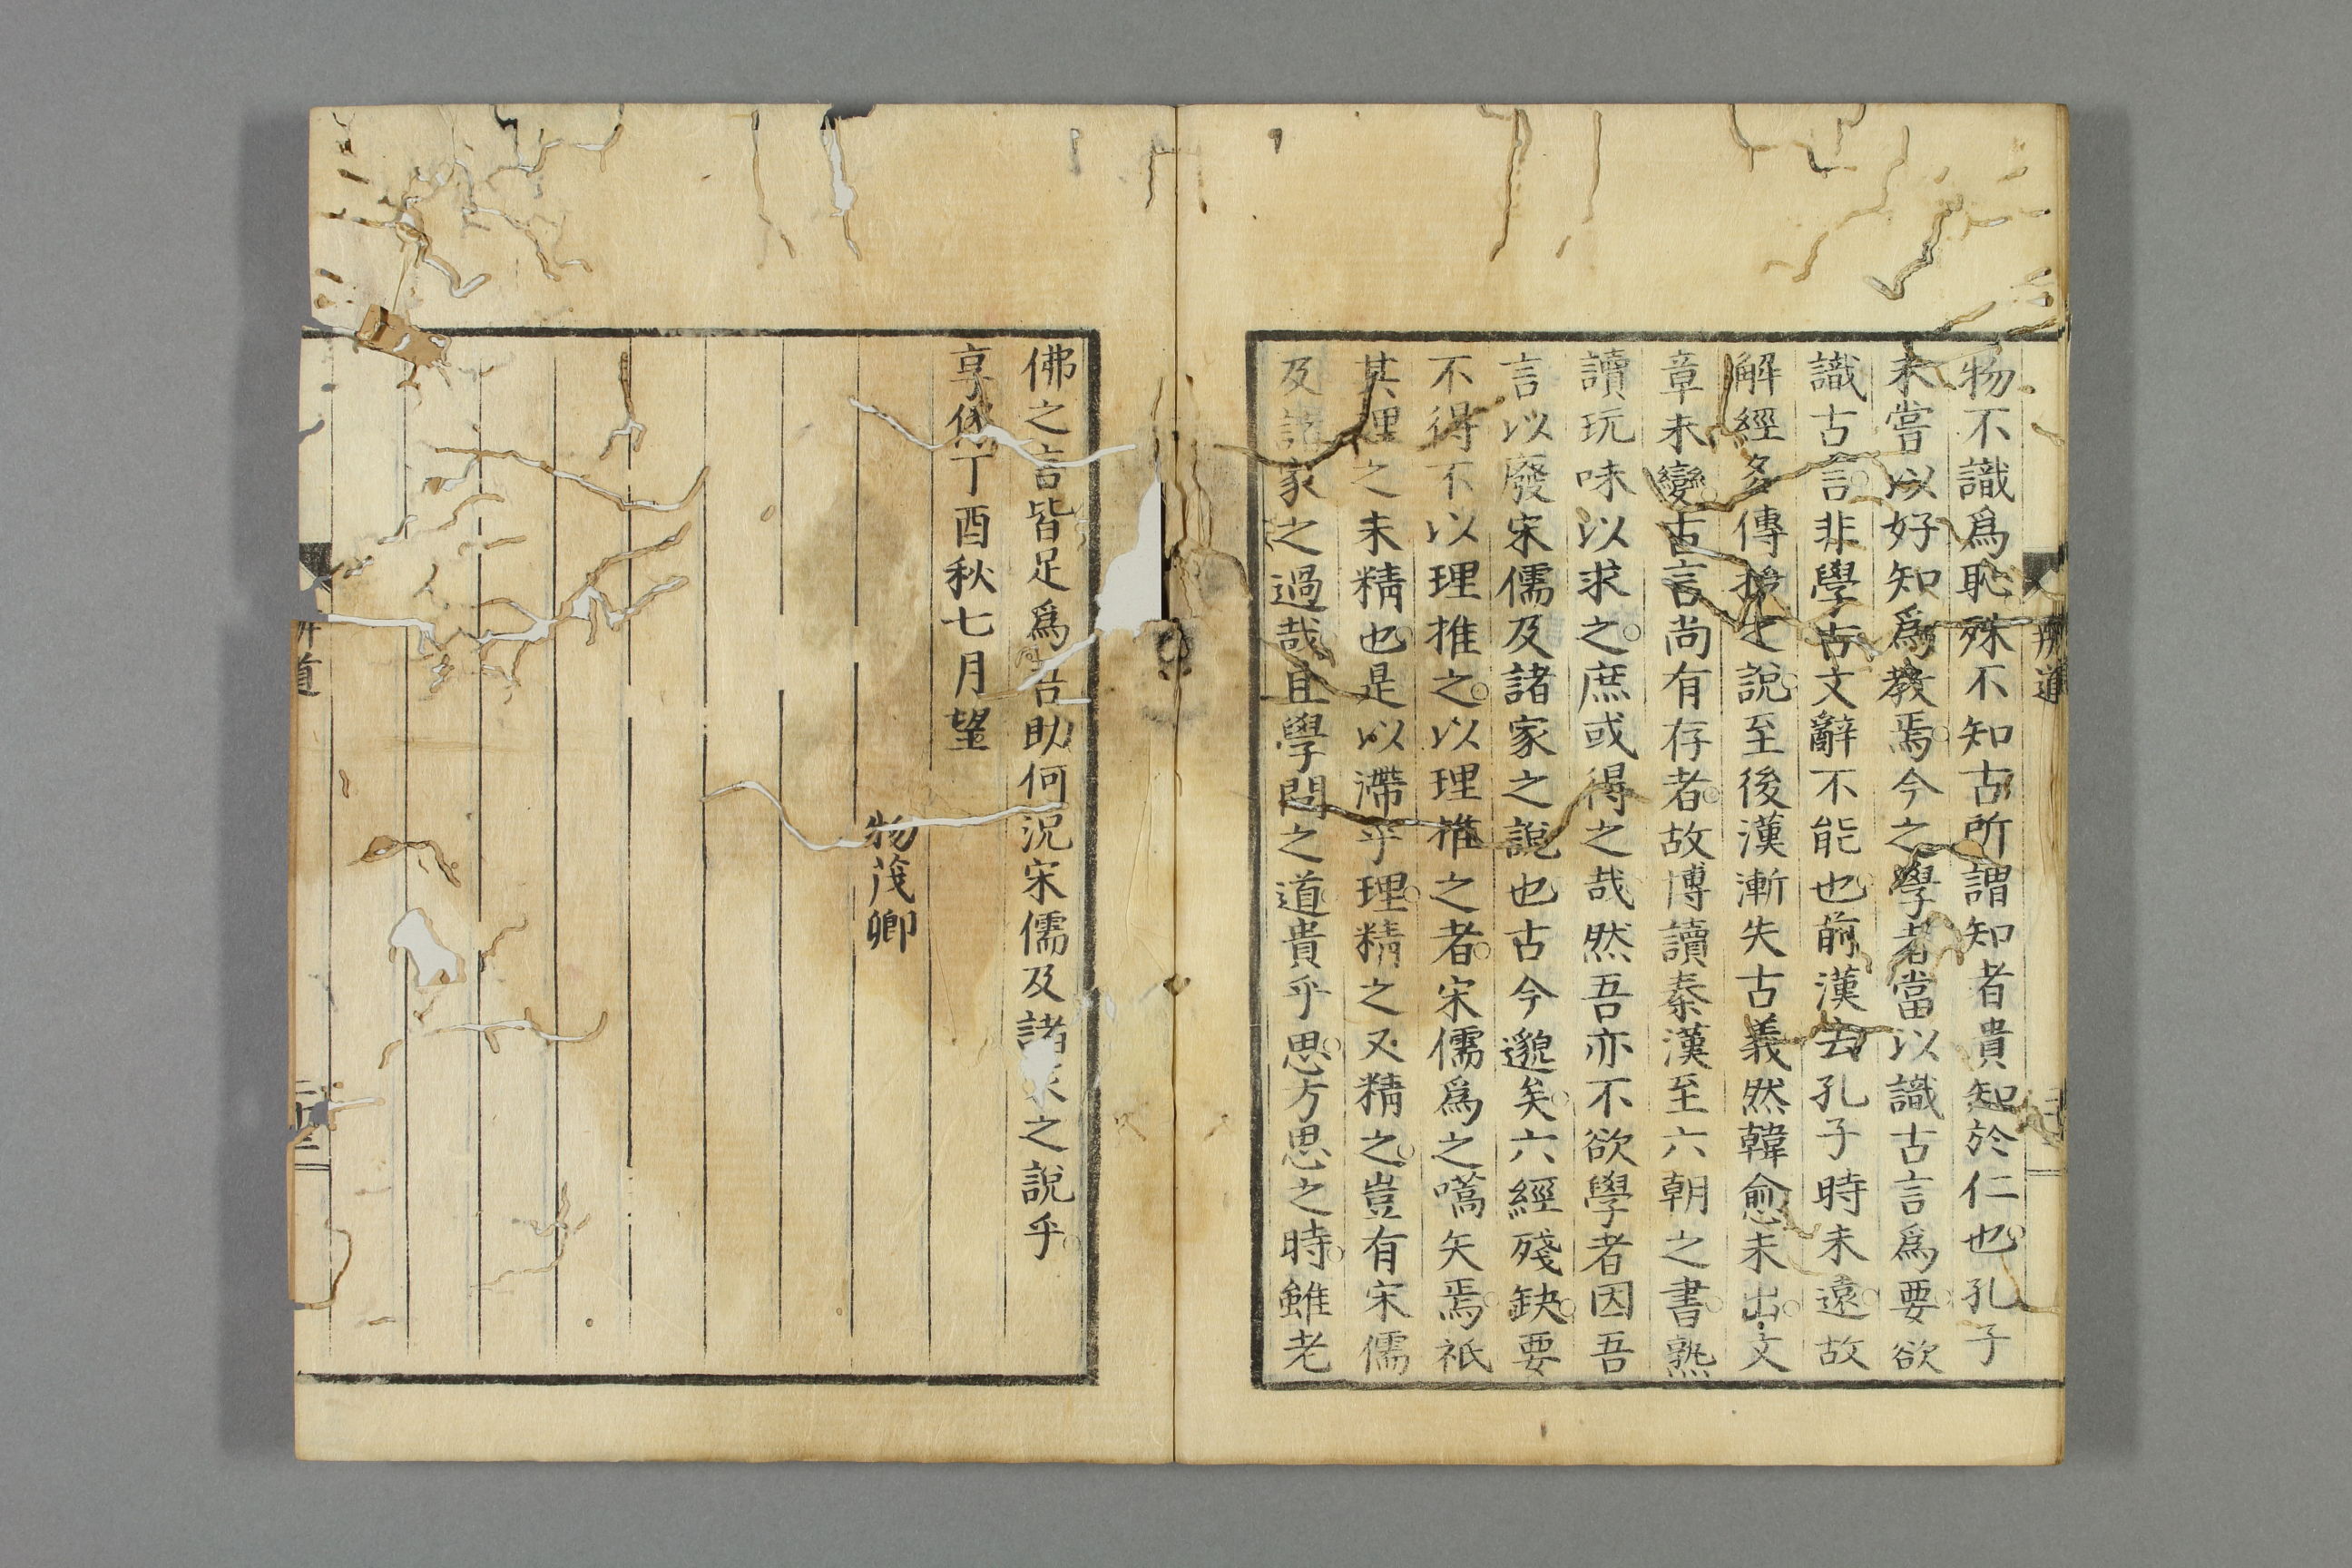 物不識爲恥殊不知古所謂知者貴知於仁也孔子
未嘗以好知爲教焉今之學者當以識古言爲要欲
識古言非學古文辭不能也前漢去孔子時未遠故
解經多傳授之說至後漢漸失古義然韓愈未出文
章未變古言尚有存者故博讀秦漢至六朝之書熟
讀玩味以求之庶或得之哉然吾亦不欲學者因吾
言以廢宋儒及諸家之說也古今邈矣六經殘缺要
不得不以理推之以理推之者宋儒爲之嚆矢焉祇
其理之未精也是以滯乎理精之又精之豈有宋儒
及諸家之過哉且學問之道貴乎思方思之時雖老
佛之言皆足爲吾助何況宋儒及諸家之說乎
享保丁酉秋七月望
物茂卿
辨道